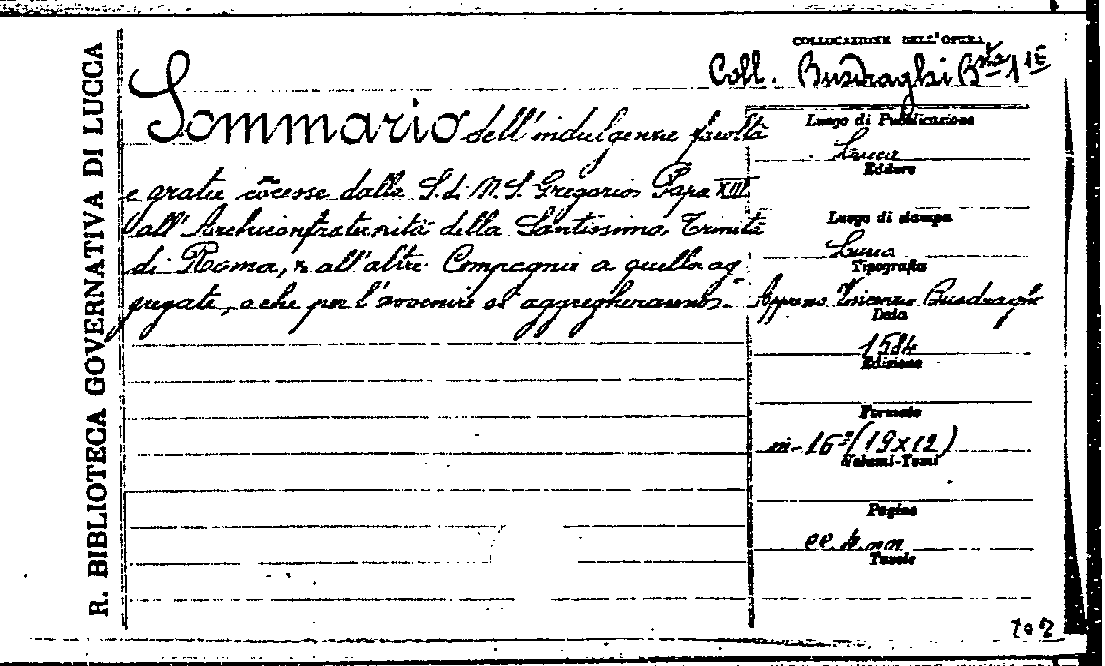 R. BIBLIOTECA GOVERNATIVA DI LUCCA
COLLOCAZIONE DELL'OPERA
Coll. Busdraghi Bta 1 1E
Sommario dell'indulgenze facoltà
e gratie cōcesse dalla S. di N. S. Gregorio Papa XIII
all'Archiconfraternità della Santissima Trinità
di Roma, & all'altre Compagnie a quella ag=
gregate, o che per l'avvenire si aggregheranno.
Luogo di Pubblicazione
Lucca
Editore
Luogo di stampa
Lucca
Tipografia
Appresso Vincenzo Busdraghi
Data
1584
Edizione
Formato
in-16° (19x12)
Volumi-Tomi
Pagine
cc. 4 nn
Tavole